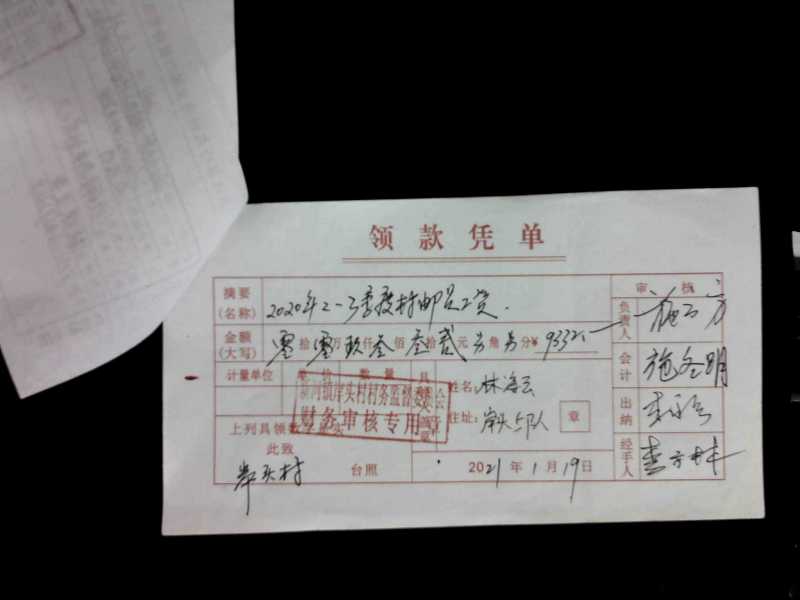 领款凭单
摘要
(名称)
2020年2-3季度村邮员工资.
审 核
负责人
金额
(大写)
零拾零万玖仟叁佰叁拾贰元 角 分¥9332.—
会计
施冬明
计量单位 单价 数量
姓名: 林海云
住址: 岸头5队
章
新河镇岸头村村务监督委员会
财务审核专用章
出纳
上列具领数字
此致
岸头村 台照
2021年1月19日
经手人